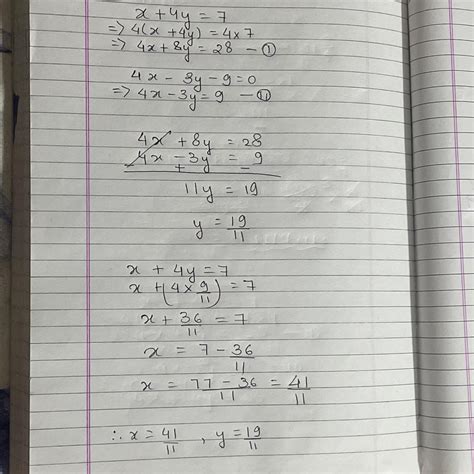 x + 4y = 7
=> 4(x + 4y) = 4 x 7
=> 4x + 8y = 28 - (I)
4x - 3y - 9 = 0
=> 4x - 3y = 9 - (II)
4x + 8y = 28
4x - 3y = 9
+ -
11y = 19
y = 19/11
x + 4y = 7
x + (4 x 9/11) = 7
x + 36/11 = 7
x = 7 - 36/11
x = 77 - 36/11 = 41/11
∴ x = 41/11 , y = 19/11